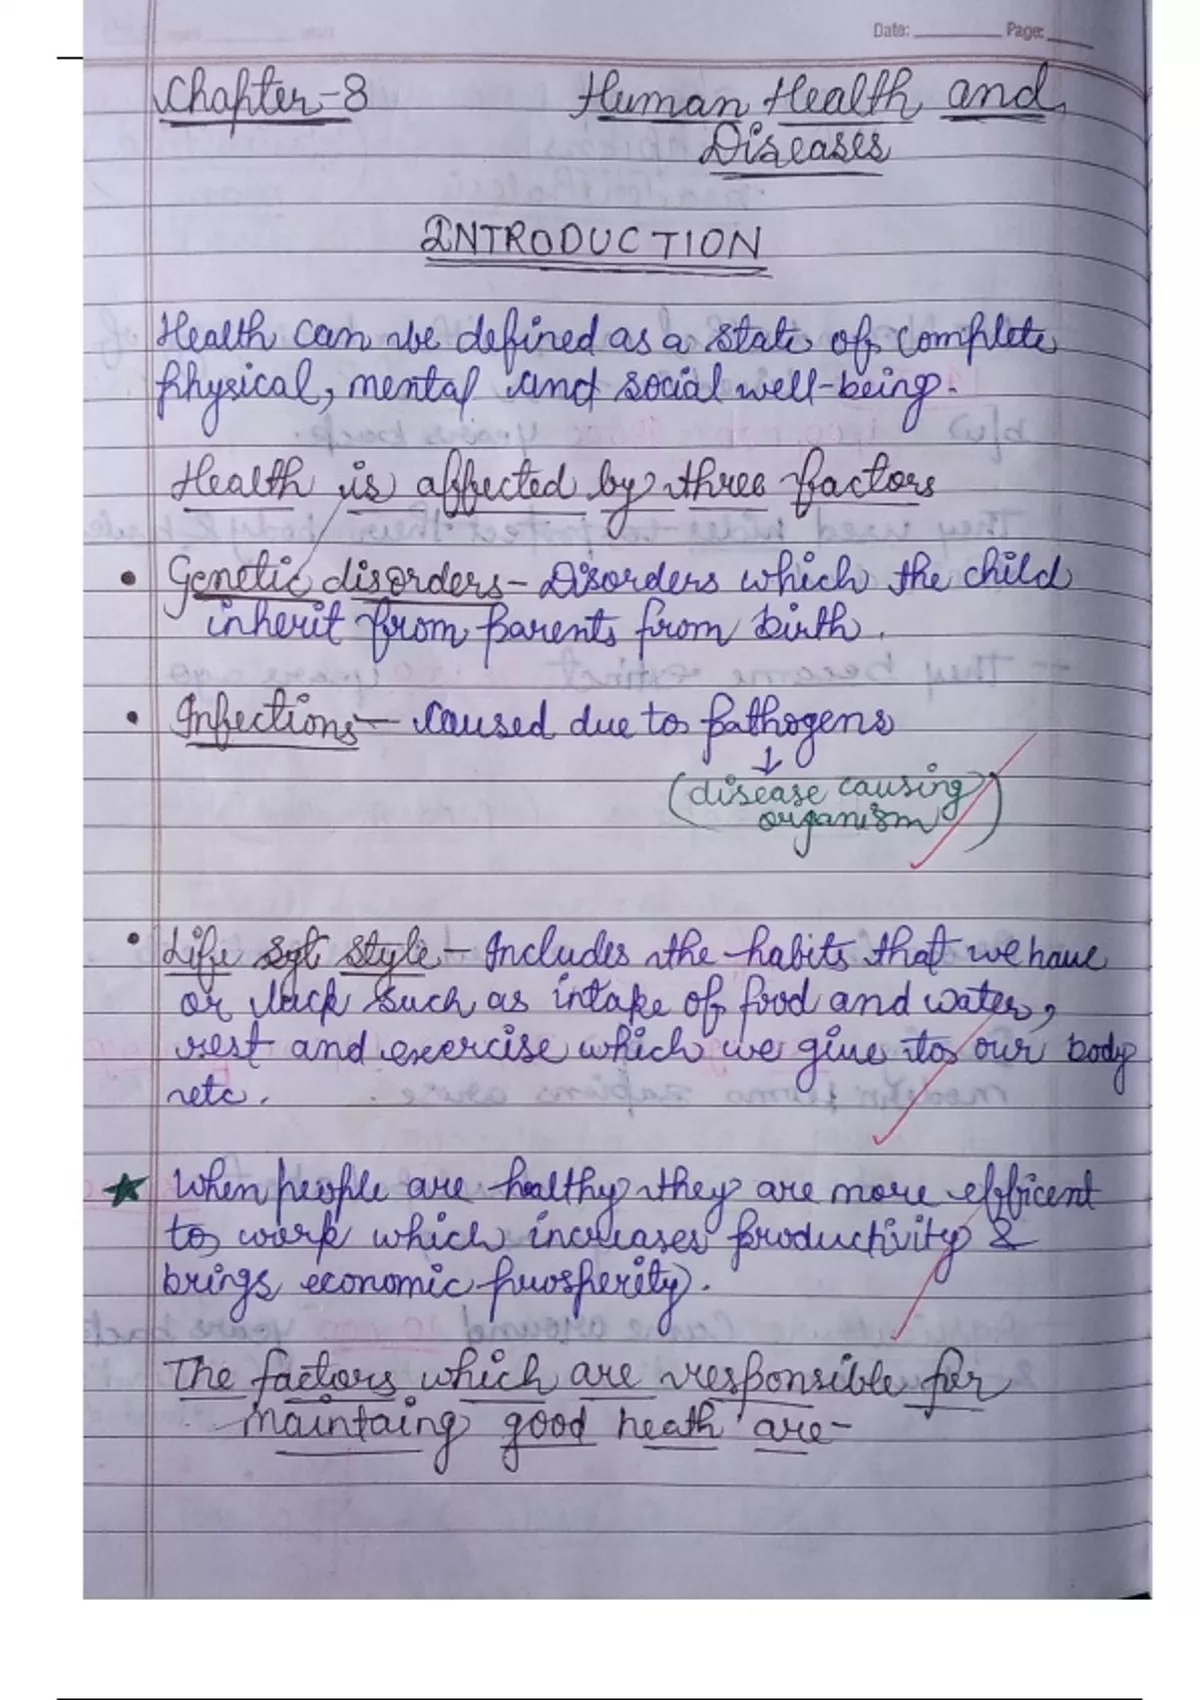 Date: Page:
Chapter-8 Human Health and
Diseases
INTRODUCTION
Health can be defined as a state of complete
physical, mental and social well-being.
Health is affected by three factors
• Genetic disorders - Disorders which the child
inherit from parents from birth.
• Infections - Caused due to pathogens
↓
(disease causing
organism)
• Life syt style - Includes the habits that we have
or lack such as intake of food and water,
rest and exercise which we give to our body
etc.
★ When people are healthy they are more efficent
to work which increases productivity &
brings economic prosperity.
The factors which are responsible for
maintaing good heath are -